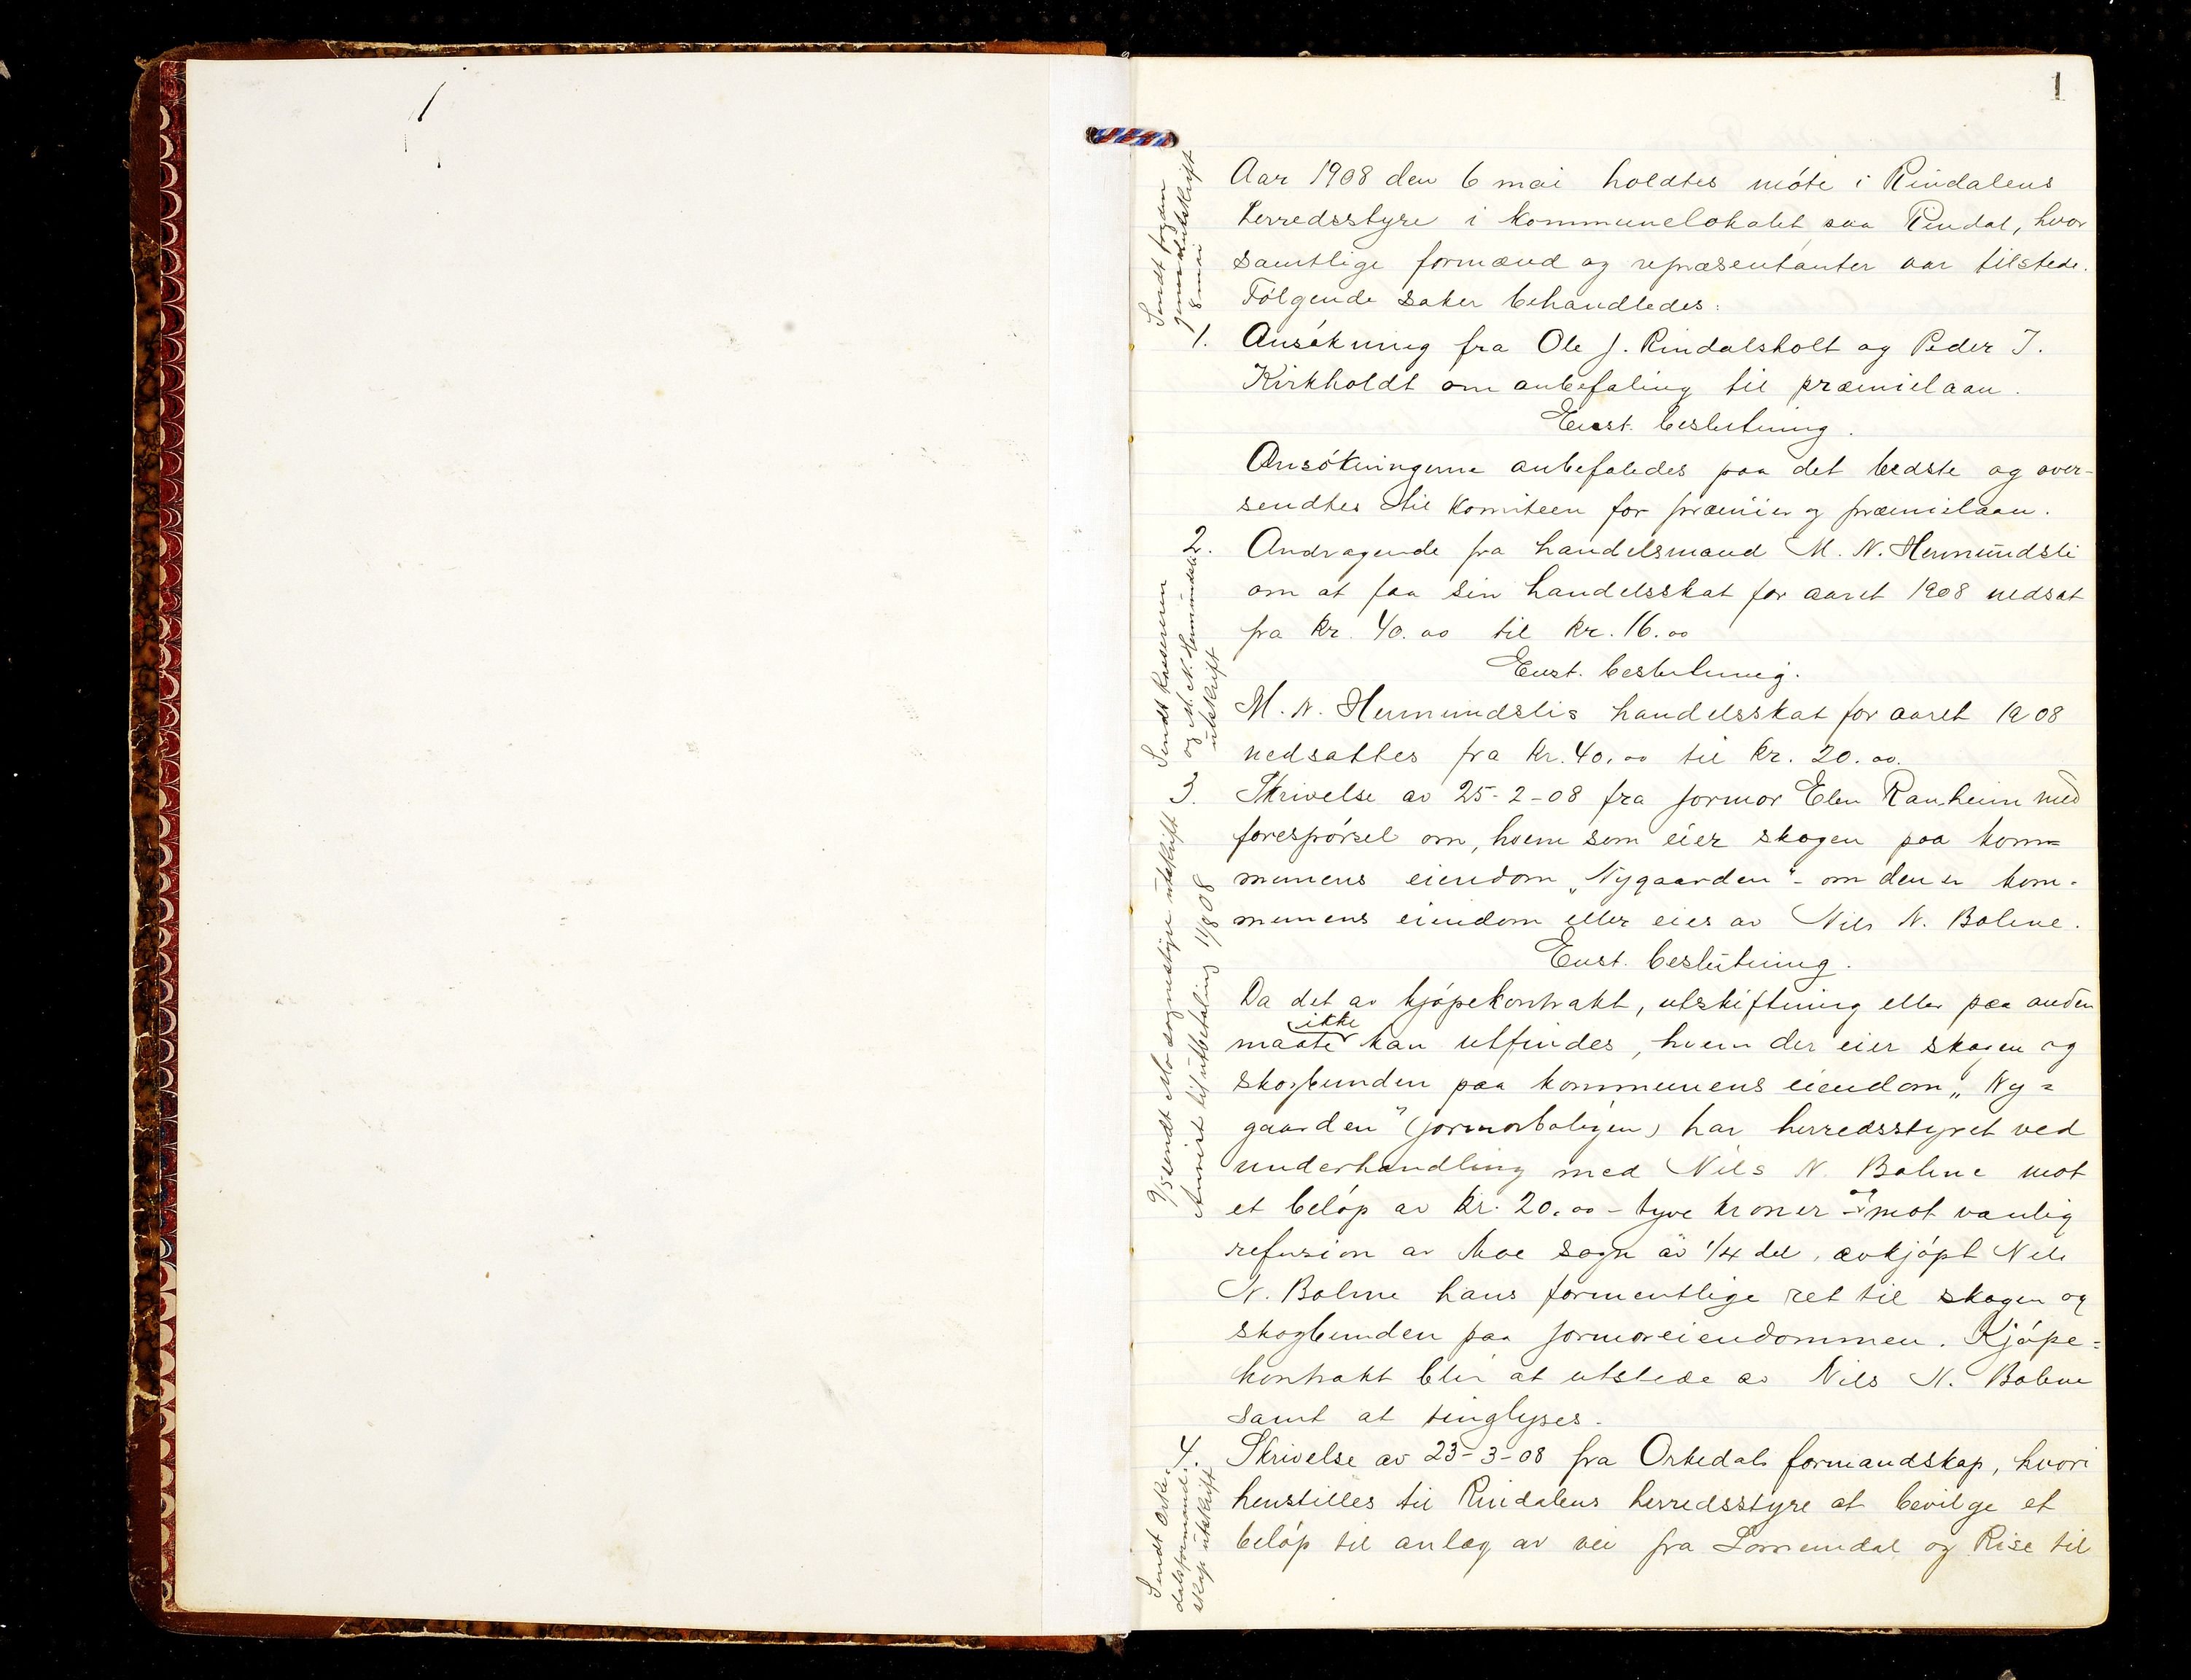 1
Aar 1908 den 6 mai holdtes möte i Rindalens
herredsstyre i kommunelokalet paa Rindal, hvor
samtlige formænd og repræsentanter var tilstede.
Følgende saker behandledes:
1. Ansökning fra Ole J. Rindalsholt og Peder J.
Kirkholdt om anbefaling til præmielaan.
Enst. beslutning.
Ansökningerne anbefaledes paa det bedste og over-
sendtes til komiteen for præmier og præmielaan.
2. Andragende fra handelsmand M. N. Hermundsli
om at faa sin handelsskat for aaret 1908 nedsat
fra kr. 40.00 til kr. 16.00
Enst. beslutning.
M. N. Hermundslis handelsskat for aaret 1908
nedsattes fra kr. 40.00 til kr. 20.00.
3. Skrivelse av 25-2-08 fra jormor Elen Ranheim med
forespörsel om, hvem som eier skogen paa kom=
munens eiendom „Nygaarden“ - om den er kom-
munens eiendom eller eies av Nils N. Bolme.
Enst. beslutning.
Da det av kjöpekontrakt, utskiftning eller paa anden
maate ikke kan utfindes, hvem der eier skogen og
skogbunden paa kommunens eiendom „Ny=
gaarden“ (jormorboligen) har herredsstyret ved
underhandling med Nils N. Bolme mot
et belöp av kr. 20.00 - tyve kroner - og mot vanlig
refusion av Moe sogn av 1/4 del, avkjöpt Nils
N. Bolme hans formentlige ret til skogen og
skogbunden paa jormoreiendommen. Kjöpe=
kontrakt blir at utstede av Nils N. Bolme
samt at tinglyses.
4. Skrivelse av 23-3-08 fra Orkedals formandskap, hvori
henstilles til Rindalens herredsstyre at bevilge et
belöp til anlæg av vei fra Lomundal og Rise til
Sendt fogden
utskrift
8 mai
Sendt kassereren
og M. N. Hermundsli
utskrift
9/5 sendt Mo sognestyre utskrift
Anvist til utbetaling 11/8 08
Sendt Orke-
dals formand-
skap utskrift